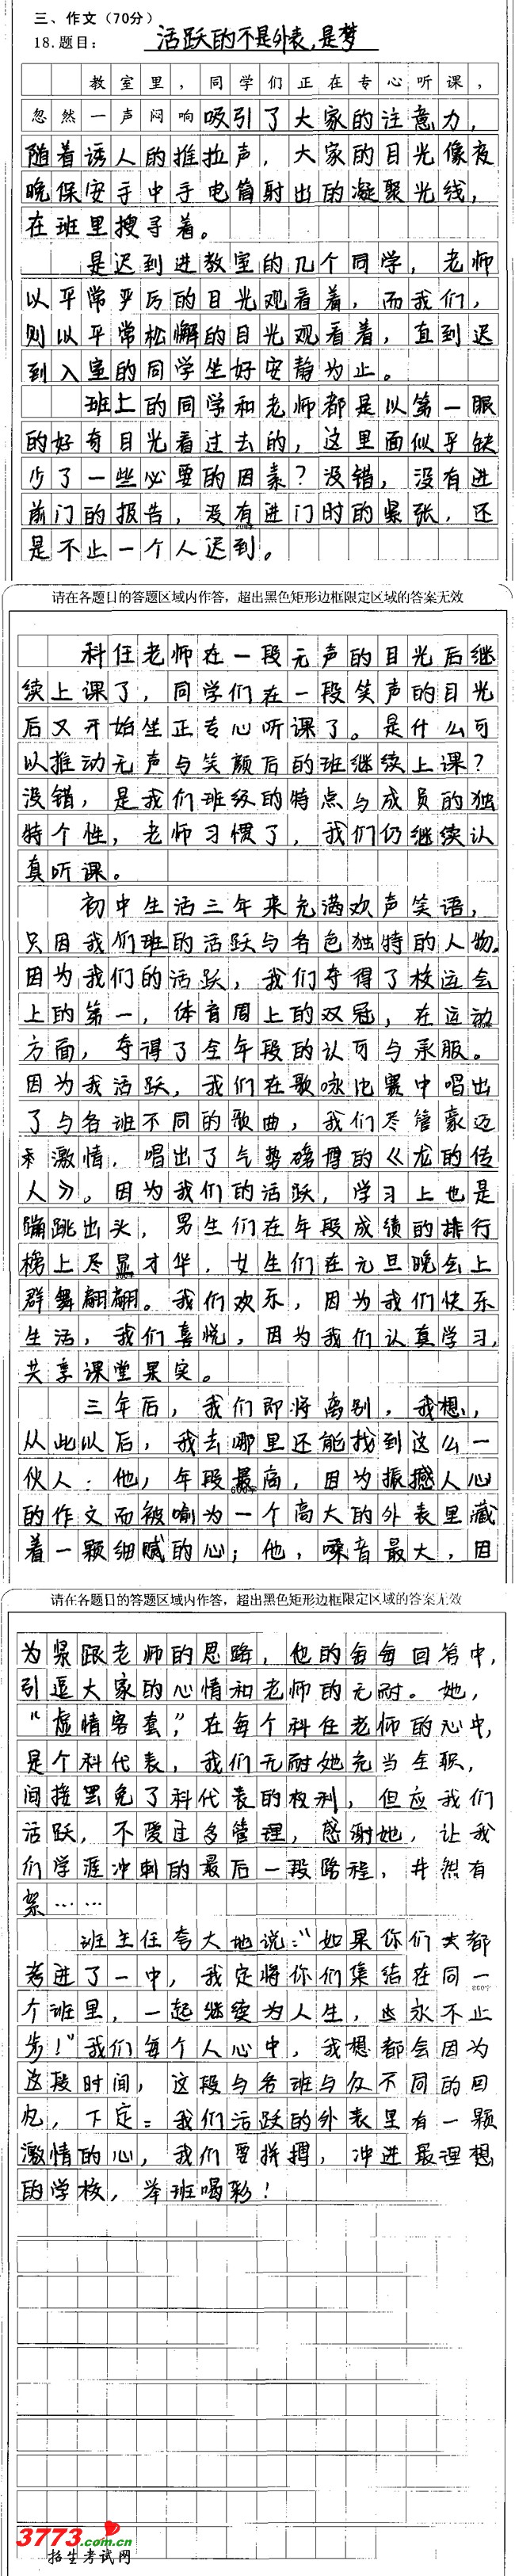 三、作文（70分）
18.题目： 活跃的不是外表，是梦
教室里，同学们正在专心听课，
忽然一声闷响吸引了大家的注意力，
随着诱人的推拉声，大家的目光像夜
晚保安手中手电筒射出的凝聚光线，
在班里搜寻着。
是迟到进教室的几个同学，老师
以平常严厉的目光观看着，而我们，
则以平常松懈的目光观看着，直到迟
到入室的同学坐好安静为止。
班上的同学和老师都是以第一眼
的好奇目光看过去的，这里面似乎缺
少了一些必要的因素？没错，没有进
前门的报告，没有进门时的紧张，还
是不止一个人迟到。
请在各题目的答题区域内作答，超出黑色矩形边框限定区域的答案无效
科任老师在一段无声的目光后继
续上课了，同学们在一段笑声的目光
后又开始坐正专心听课了。是什么可
以推动无声与笑颜后的班继续上课？
没错，是我们班级的特点与成员的独
特个性，老师习惯了，我们仍继续认
真听课。
初中生活三年来充满欢声笑语，
只因我们班的活跃与各色独特的人物。
因为我们的活跃，我们夺得了校运会
上的第一，体育周上的双冠，在运动
方面，夺得了全年段的认可与承服。
因为我活跃，我们在歌咏比赛中唱出
了与各班不同的歌曲，我们尽管豪迈
和激情，唱出了气势磅礴的《龙的传
人》。因为我们的活跃，学习上也是
蹦跳出头，男生们在年段成绩的排行
榜上尽显才华，女生们在元旦晚会上
群舞翩翩。我们欢乐，因为我们快乐
生活，我们喜悦，因为我们认真学习，
共享课堂果实。
三年后，我们即将离别，我想，
从此以后，我去哪里还能找到这么一
伙人：他，年段最高，因为振撼人心
的作文而被喻为一个高大的外表里藏
着一颗细腻的心；他，嗓音最大，因
请在各题目的答题区域内作答，超出黑色矩形边框限定区域的答案无效
为紧跟老师的思路，他的每每回答中，
引逗大家的心情和老师的无耐。她，
“虚情客套”，在每个科任老师的心中，
是个科代表，我们无耐她充当全职，
间接罢免了科代表的权利，但应我们
活跃，不受过多管理，感谢她，让我
们学涯冲刺的最后一段路程，井然有
絮……
班主任夸大地说：“如果你们大都
考进了一中，我定将你们集结在同一
个班里，一起继续为人生，永不止
步！”我们每个人心中，我想都会因为
这段时间，这段与各班与众不同的回
忆，下定：我们活跃的外表里有一颗
激情的心，我们要拼搏，冲进最理想
的学校，举班喝彩！
3773.com.cn
招生考试网